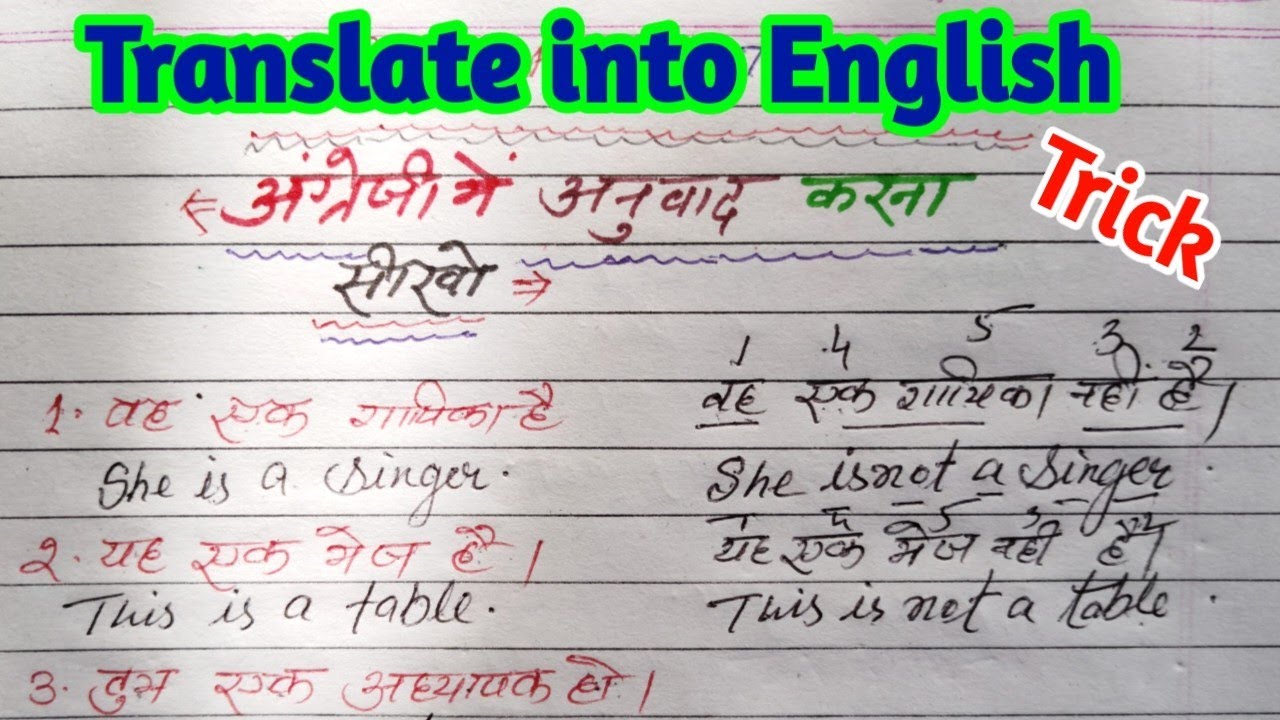 Translate into English
Trick
⇐ अंग्रेजी में अनुवाद करना
सीखो ⇒
1. वह एक गायिका है
She is a singer.
2. यह एक मेज है।
This is a table.
3. तुम एक अध्यापक हो।
1 4 5 3 2
वह एक गायिका नहीं है।
She is not a singer.
1 4 5 3 2
यह एक मेज नही है।
This is not a table.